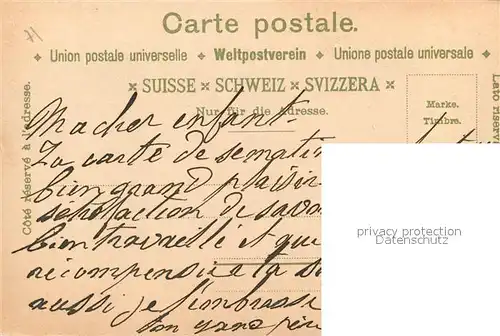 Carte postale.
Union postale universelle ✦ Weltpostverein ✦ Unione postale universale
SUISSE × SCHWEIZ × SVIZZERA
Nur für die Adresse.
Marke.
Timbre.
Côté réservé à l'adresse.
Lato riserv
Ma cher enfant.
Ta carte de ce matin
bien grand plaisir
satisfaction de savoir
bien travaillé et que
récompensera ta
aussi je t'embrasse
ton gand père
privacy protection
Datenschutz